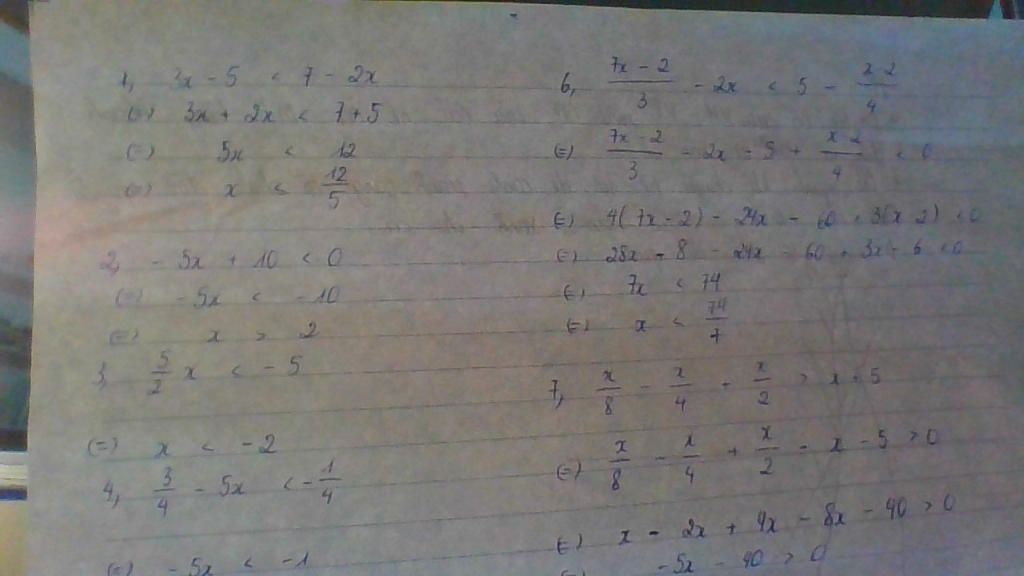 1, 3x - 5 < 7 - 2x
(=) 3x + 2x < 7 + 5
(=) 5x < 12
(=) x < 12/5
2, - 5x + 10 < 0
(=) - 5x < - 10
(=) x > 2
3, 5/2 x < - 5
(=) x < - 2
4, 3/4 - 5x < - 1/4
(=) - 5x < - 1
6, (7x - 2)/3 - 2x < 5 - (x - 2)/4
(=) (7x - 2)/3 - 2x - 5 + (x - 2)/4 < 0
(=) 4(7x - 2) - 24x - 60 + 3(x - 2) < 0
(=) 28x - 8 - 24x - 60 + 3x - 6 < 0
(=) 7x < 74
(=) x < 74/7
7, x/8 - x/4 + x/2 > x + 5
(=) x/8 - x/4 + x/2 - x - 5 > 0
(=) x - 2x + 4x - 8x - 40 > 0
(=) - 5x - 40 > 0